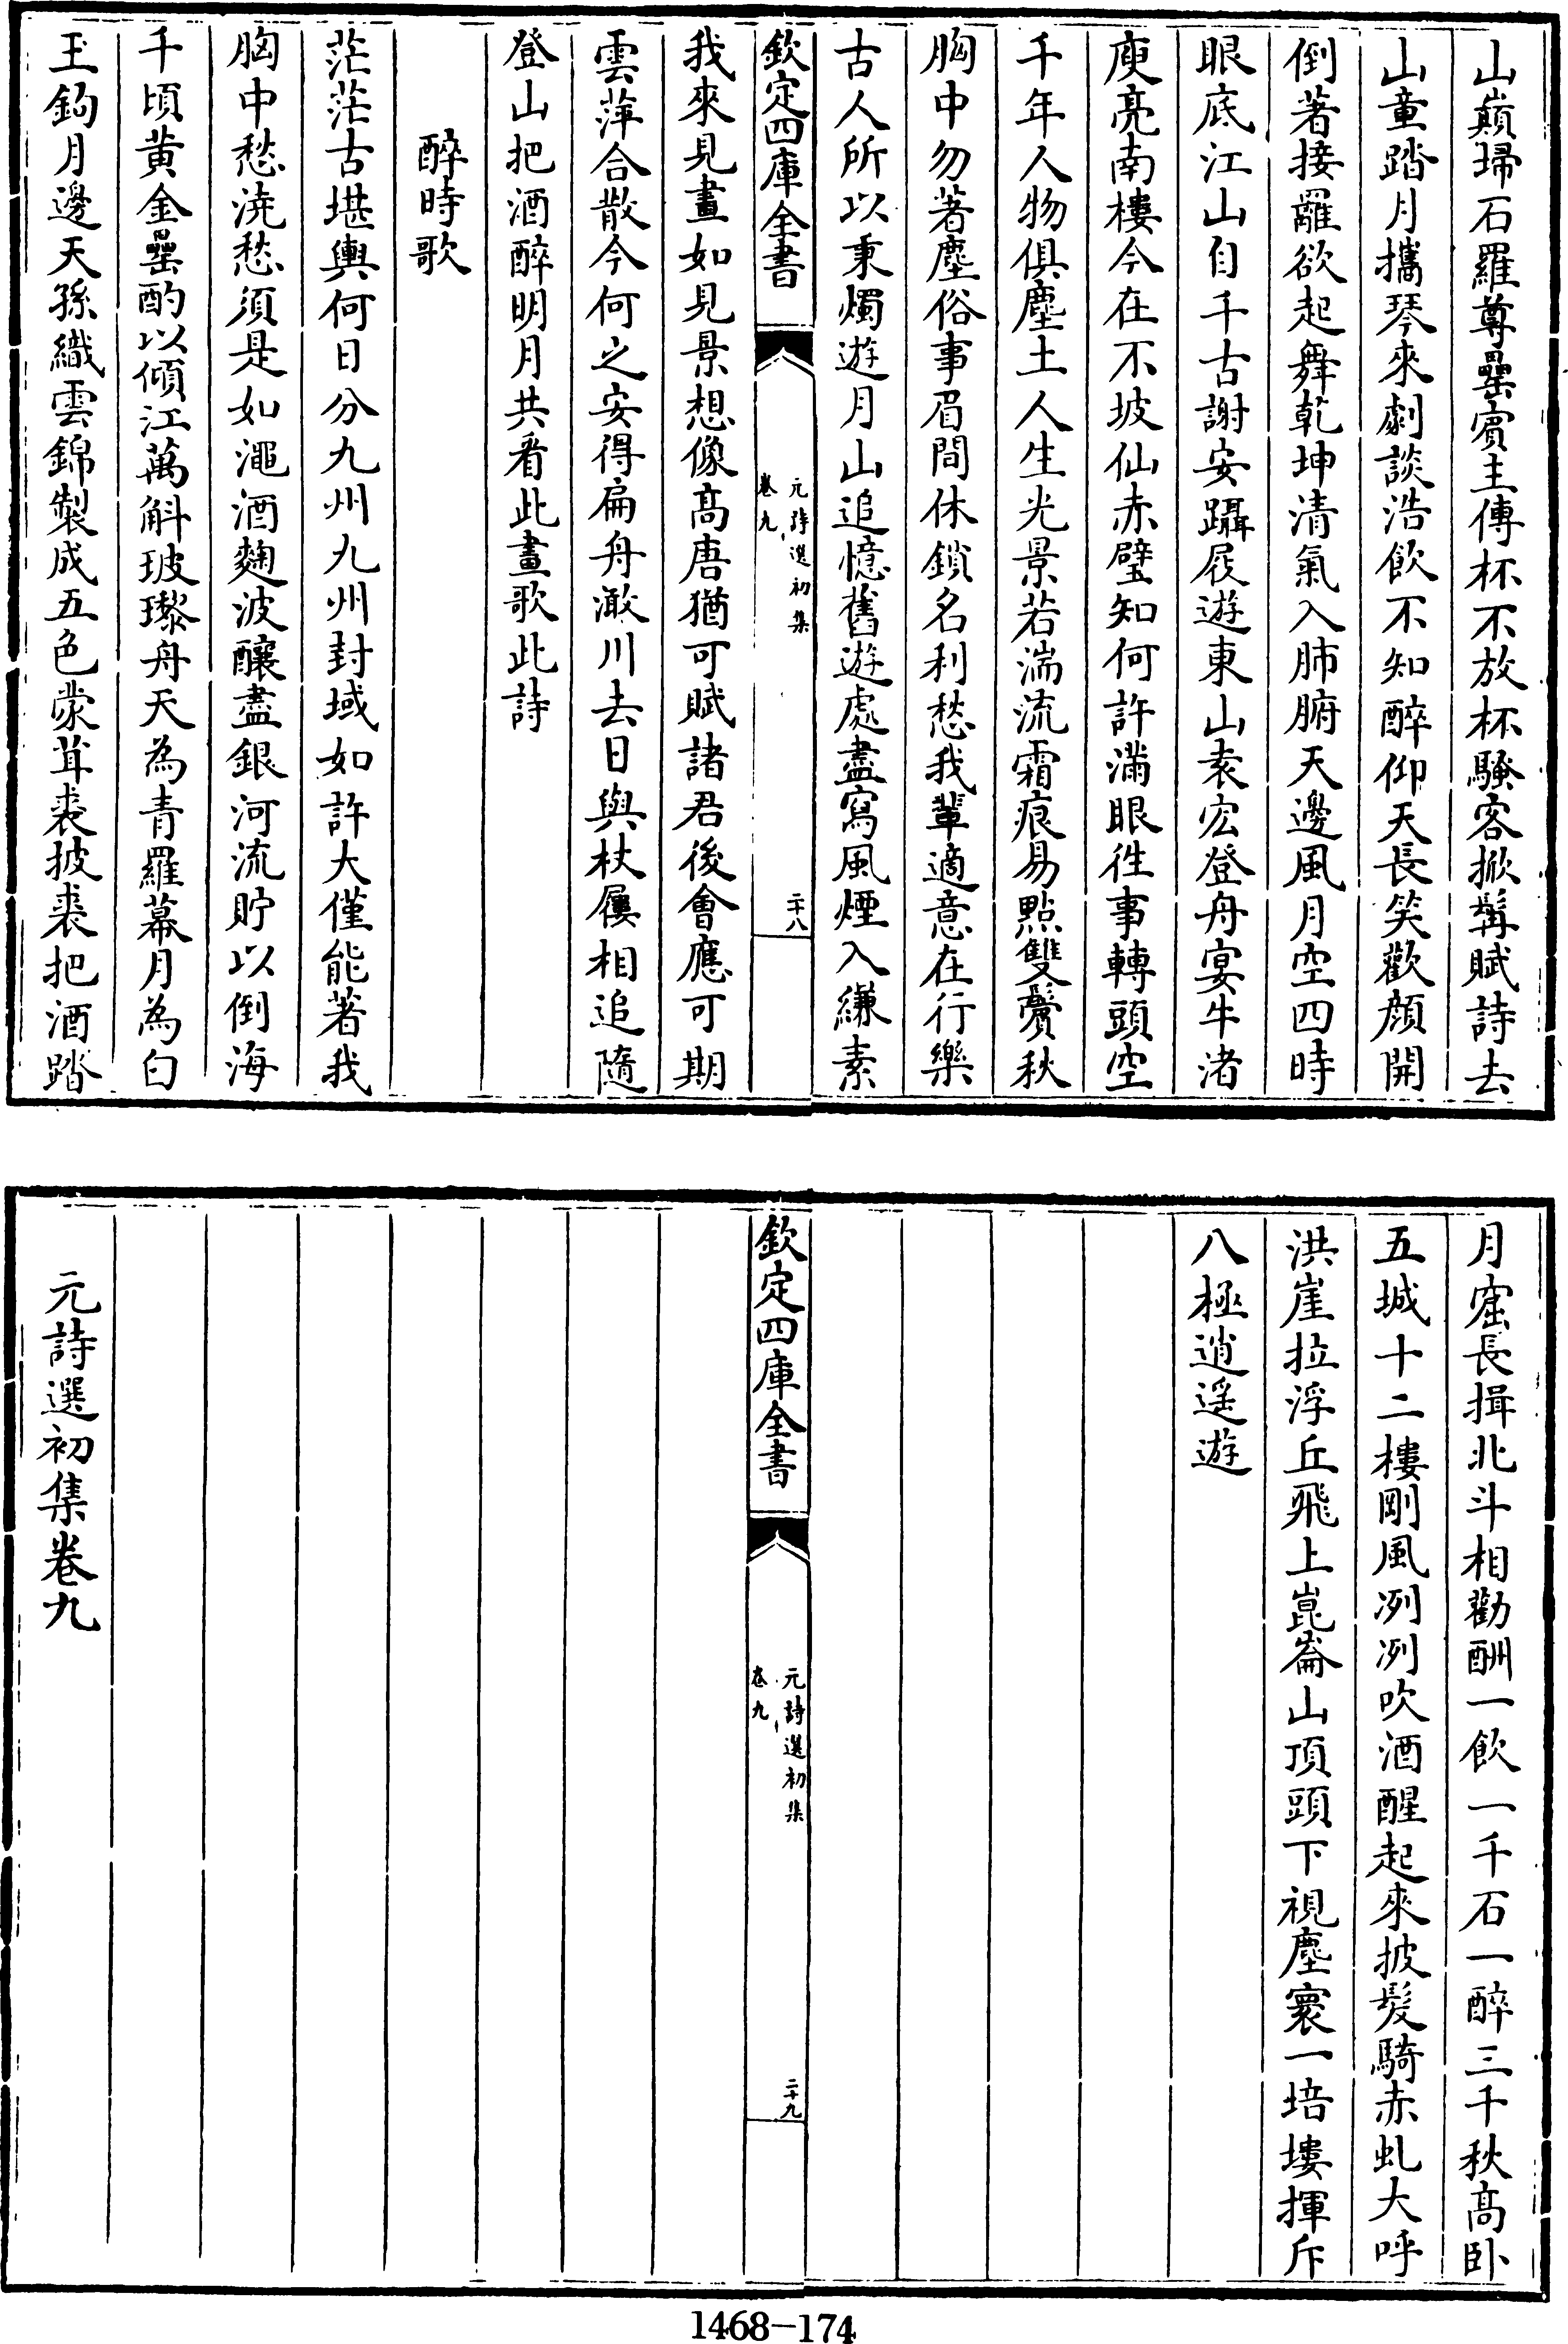 山巔掃石羅尊罍賓主傳杯不放杯騷客掀髯賦詩去
山童踏月攜琴來劇談浩飲不知醉仰天長笑歡顔開
倒著接䍦欲起舞乾坤清氣入肺腑天邊風月空四時
眼底江山自千古謝安躡屐遊東山袁宏登舟宴牛渚
庾亮南樓今在不坡仙赤壁知何許滿眼徃事轉頭空
千年人物俱塵土人生光景若湍流霜痕易點雙鬢秋
胸中勿著塵俗事眉間休鎖名利愁我輩適意在行樂
古人所以秉燭遊月山追憶舊遊處盡寫風煙入縑素
欽定四庫全書
元詩選初集
卷九
二十八
我來見畫如見景想像高唐猶可賦諸君後會應可期
雲萍合散今何之安得扁舟澉川去日與杖屨相追隨
登山把酒醉明月共看此畫歌此詩
醉時歌
茫茫古堪輿何日分九州九州封域如許大僅能著我
胸中愁澆愁須是如澠酒麴波釀盡銀河流貯以倒海
千頃黄金罍酌以傾江萬斛玻瓈舟天為青羅幕月為白
玉鈎月邊天孫織雲錦製成五色蒙茸裘披裘把酒踏
月窟長揖北斗相勸酬一飲一千石一醉三千秋高卧
五城十二樓剛風冽冽吹酒醒起來披髮騎赤虬大呼
洪崖拉浮丘飛上崑崙山頂頭下視塵寰一培塿揮斥
八極逍遥遊
欽定四庫全書
元詩選初集
卷九
二十九
元詩選初集卷九
1468-174